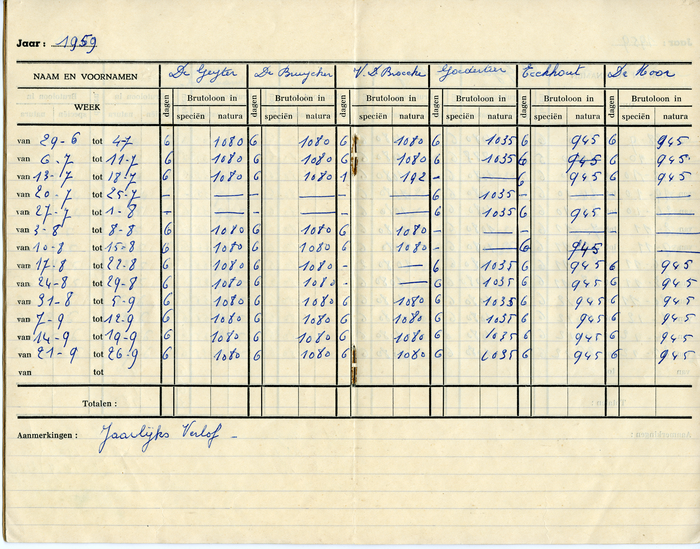 Jaar : 1959
NAAM EN VOORNAMEN De Geyter De Bruycker V. D. Broecke Gordelier Eeckhout De Moor
WEEK dagen Brutoloon in dagen Brutoloon in dagen Brutoloon in dagen Brutoloon in dagen Brutoloon in dagen Brutoloon in
speciën natura speciën natura speciën natura speciën natura speciën natura speciën natura
van 29-6 tot 4-7 6 1080 6 1080 6 1080 6 1035 6 945 6 945
van 6-7 tot 11-7 6 1080 6 1080 6 1080 6 1035 6 945 6 945
van 13-7 tot 18-7 6 1080 6 1080 1 192 - — 6 945 6 945
van 20-7 tot 25-7 - — - — - — 6 1035 - — - —
van 27-7 tot 1-8 - — - — - — 6 1035 6 945 - —
van 3-8 tot 8-8 6 1080 6 1080 6 1080 - — - — - —
van 10-8 tot 15-8 6 1080 6 1080 6 1080 - — 6 945 - —
van 17-8 tot 22-8 6 1080 6 1080 - — 6 1035 6 945 6 945
van 24-8 tot 29-8 6 1080 6 1080 - — 6 1035 6 945 6 945
van 31-8 tot 5-9 6 1080 6 1080 6 1080 6 1035 6 945 6 945
van 7-9 tot 12-9 6 1080 6 1080 6 1080 6 1035 6 945 6 945
van 14-9 tot 19-9 6 1080 6 1080 6 1080 6 1035 6 945 6 945
van 21-9 tot 26-9 6 1080 6 1080 6 1080 6 1035 6 945 6 945
van tot
Totalen :
Aanmerkingen : Jaarlijks Verlof -